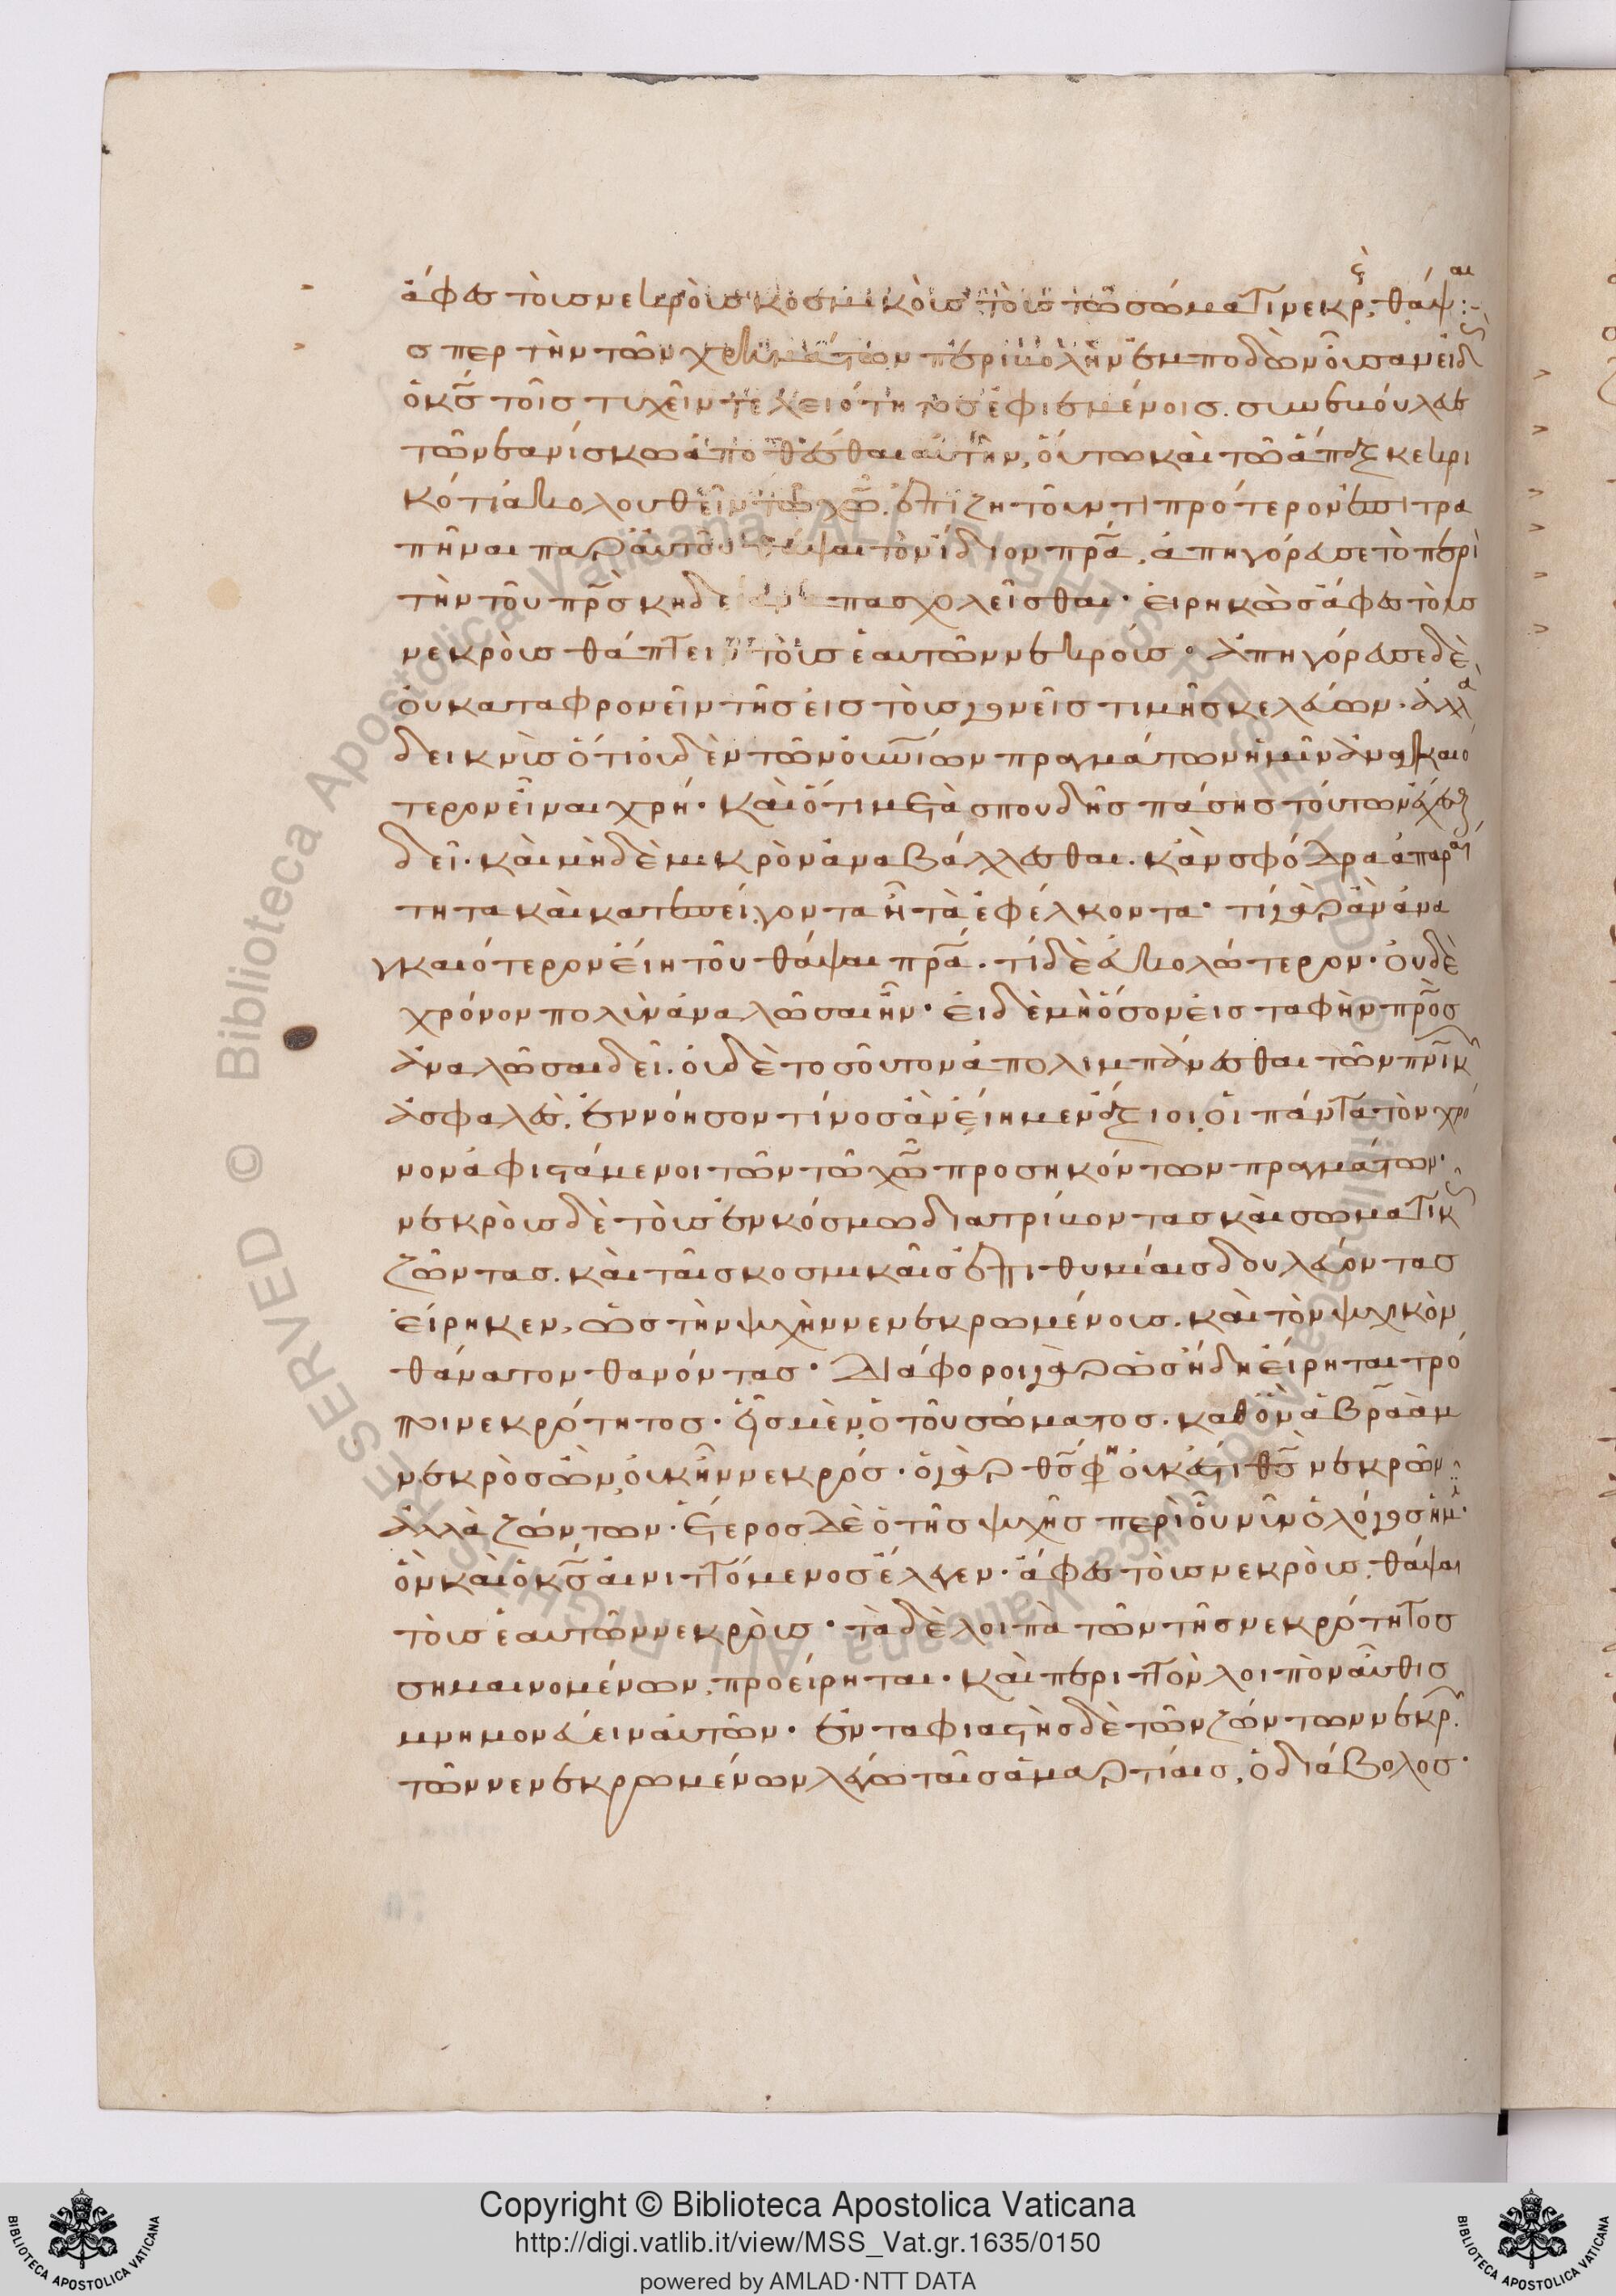 ἄφες τοὺς νεκροὺς κοσμικοὺς τοὺς τῶ σώματι νεκρ θάψαι :-
σπερ τὴν τῶν χρημάτων περιβολὴν ἐμποδὼν οὖσαν εἰδ
ὁ κς τοῖς τυχεῖν τελειότητος ἐφιεμένοις. συνεβούλευε
τῶ νεανίσκω ἀποθέσθαι αὐτὴν, οὕτω καὶ τῶ ἀπο κεκρι
κότι ἀκολουθεῖν τῶ χῶ. ἐπιζητοῦντι πρότερον ἐπιτρα
πῆναι παρ αὐτοῦ θάψαι τὸν ἴδιον πρα, ἀπηγόρευσε τὸ περὶ
τὴν τοῦ πρς κηδείαν ἀπασχολεῖσθαι· εἰρηκὼς ἄφες τοὺς
νεκροὺς θάπτειν τοὺς ἑαυτῶν νεκρούς· ἀπηγόρευσε δὲ,
οὐ καταφρονεῖν τῆς εἰς τοὺς γονεῖς τιμῆς κελεύων. ἀλλὰ
δεικνὺς ὅτι οὐδὲν τῶν οὐνίων πραγμάτων ἡμῖν ἀναγκαιό
τερον εἶναι χρή· καὶ ὅτι μετὰ σπουδῆς πάσης τούτων ἔχεσθ
δεῖ. καὶ μηδὲ μικρὸν ἀναβάλλεσθαι. κἂν σφόδρα ἀπαραί
τητα καὶ κατεπείγοντα ἦ τὰ ἐφέλκοντα· τί γὰρ ἂν ἀνα
γκαιότερον εἴη τοῦ θάψαι πρα. τί δὲ εὐκολώτερον· οὐδὲ
χρόνον πολὺν ἀναλῶσαι ἦν· εἰ δὲ μὴ ὅσον εἰς ταφὴν πρς
ἀναλῶσαι δεῖ. οὐδὲ τοσοῦτον ἀπολιμπάνεσθαι τῶν πνικ
ἀσφαλές. ἐννόησον τίνος ἂν εἴημεν ἄξιοι. οἱ πάντα τὸν χρό
νον ἀφιστάμενοι τῶν τῶ χῶ προσηκόντων πραγμάτων·
νεκροὺς δὲ τοὺς ἐν κόσμω διατρίβοντας καὶ σωματικ
ζῶντας. καὶ ταῖς κοσμικαῖς ἐπιθυμίαις δουλεύοντας
εἴρηκεν, ὡς τὴν ψυχὴν νενεκρωμένους. καὶ τὸν ψυχικὸν
θάνατον θανόντας· διάφοροι γὰρ ὡς ἤδη εἴρηται τρό
ποι νεκρότητος. εἷς μὲν ὁ τοῦ σώματος. καθ ὃν ἀβραὰμ
νεκρὸς ὢν, οὐκ ἦν νεκρός. ὁ γὰρ θς φη οὐκ ἔστι θς νεκρῶν
ἀλλὰ ζώντων. ἕτερος δὲ ὁ τῆς ψυχῆς περὶ οὗ νῦν ὁ λόγος ἡμῖ·
ὃν καὶ ὁ κς αἰνιττόμενος ἔλεγεν. ἄφες τοὺς νεκροὺς, θάψαι
τοὺς ἑαυτῶν νεκρούς. τὰ δὲ λοιπὰ τῶν τῆς νεκρότητος
σημαινομένων, προείρηται. καὶ περιττὸν λοιπὸν αὖθις
μνημονεύειν αὐτῶν. ἐνταφιαστὴς δὲ τῶν ζώντων νεκρ
τῶν νενεκρωμένων λέγω ταῖς ἁμαρτίαις, ὁ διάβολος.
© Biblioteca Apostolica Vaticana ALL RIGHTS RESERVED
Copyright © Biblioteca Apostolica Vaticana
http://digi.vatlib.it/view/MSS_Vat.gr.1635/0150
powered by AMLAD·NTT DATA
BIBLIOTECA APOSTOLICA VATICANA
BIBLIOTECA APOSTOLICA VATICANA